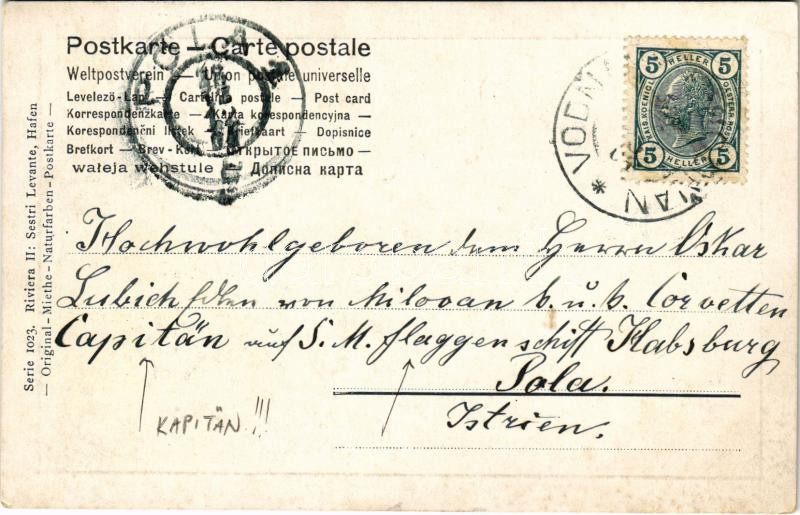 Postkarte — Carte postale
Weltpostverein — Union postale universelle
Levelező-Lap — Cartolina postale — Post card
Korrespondenzkarte — Karta korespondencyjna —
Korespondenční lístek — Brietkaart — Dopisnice
Brefkort — Brev-Kort — Открытое письмо —
wałeja wehstule — Дописна карта
POLA
VODNJAN * 
5 HELLER 5
KAIS. KOENIGL. OESTERR. POST
5 HELLER 5
Serie 1023. Riviera II: Sestri Levante, Hafen
— Original-Miethe-Naturfarben-Postkarte —
Hochwohlgeboren dem Herrn Oskar
Lubich Edlen von Milovan k. u. k. Corvetten
Capitän auf S. M. flaggenschiff Habsburg
Pola.
Istrien.
KAPITÄN !!!